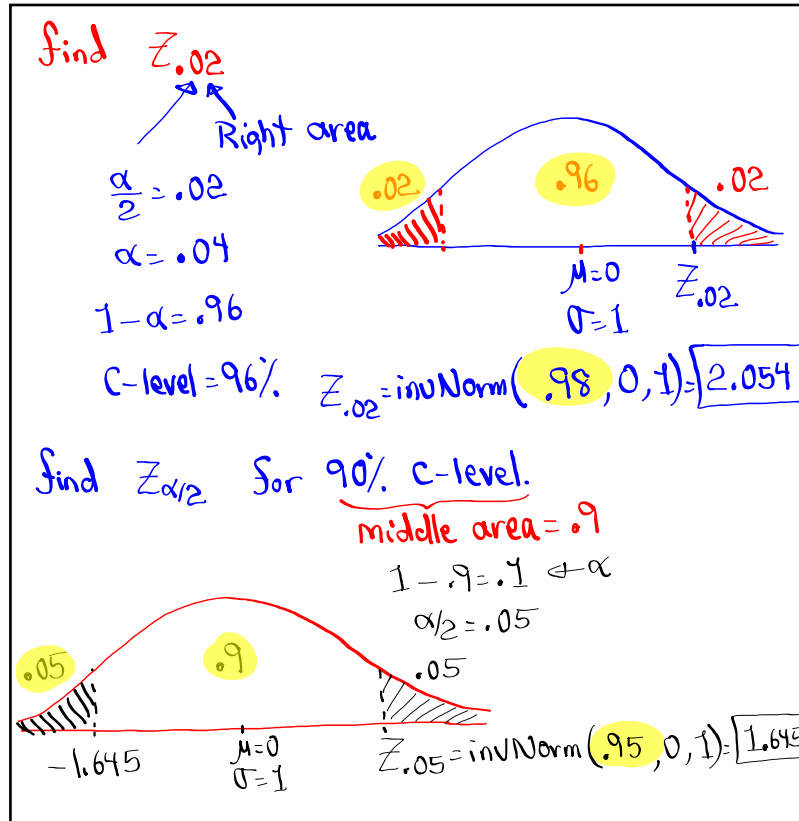 find Z.02
Right area
α/2 = .02
α = .04
1 - α = .96
C-level = 96%
.02 .96 .02
μ=0 Z.02
σ=1
Z.02 = invNorm(.98, 0, 1) = 2.054
find Zα/2 for 90% C-level.
middle area = .9
1 - .9 = .1 ← α
α/2 = .05
.05 .9 .05
-1.645 μ=0
σ=1
Z.05 = invNorm(.95, 0, 1) = 1.645